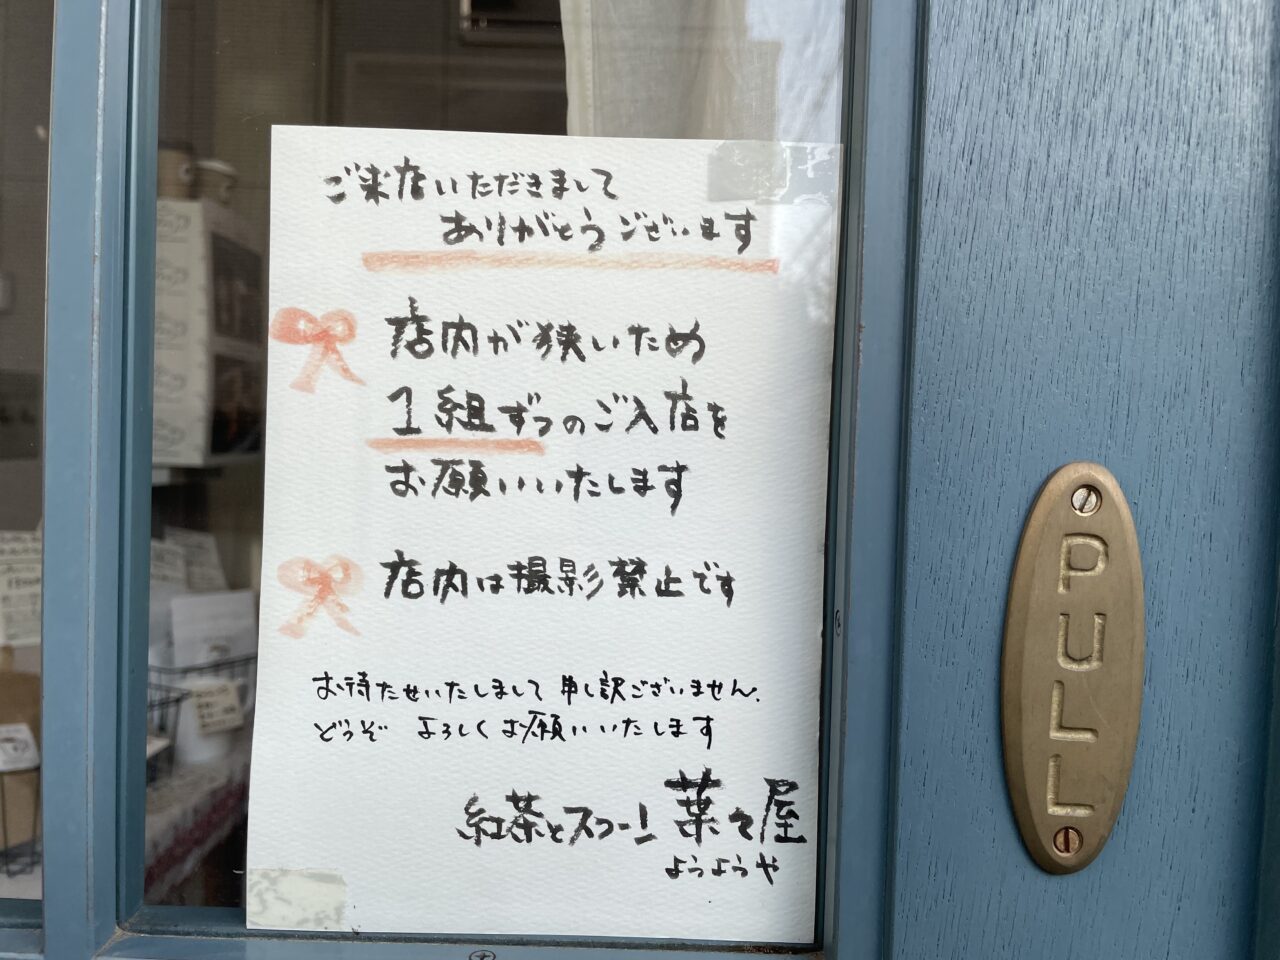 ご来店いただきまして
ありがとうございます
店内が狭いため
1組ずつのご入店を
お願いいたします
店内は撮影禁止です
お待たせいたしまして 申し訳ございません.
どうぞ よろしくお願いいたします
紅茶とスコーン 葉々屋
ようようや
PULL